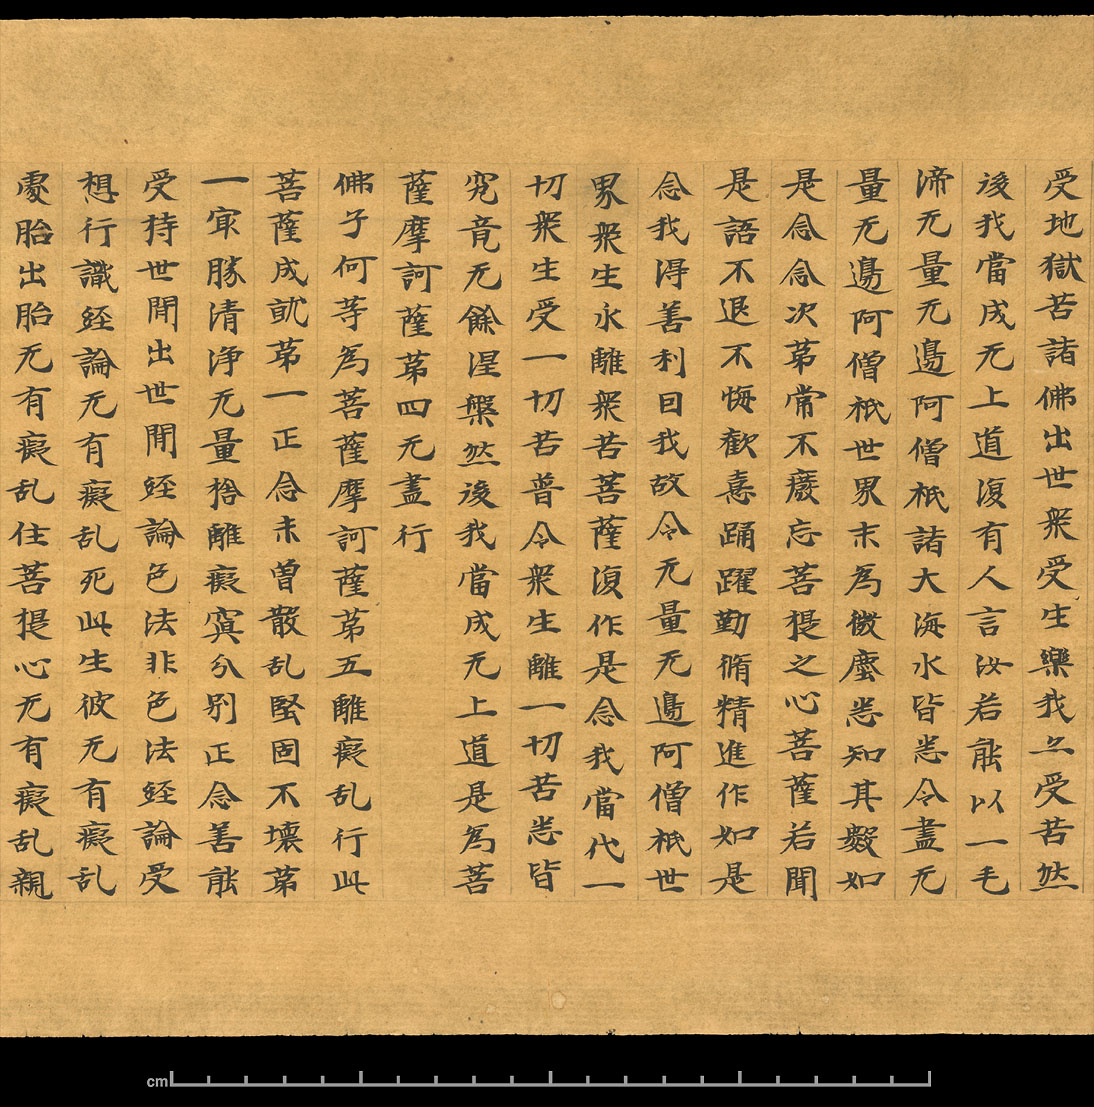 受地獄苦諸佛出世衆受生樂我久受苦然
後我當成无上道復有人言汝若能以一毛
渧无量无邊阿僧祇諸大海水皆悉令盡无
量无邊阿僧祇世界末為微塵悉知其數如
是念念次第常不癈忘菩提之心菩薩若聞
是語不退不悔歡憙踊躍勤脩精進作如是
念我得善利因我故令无量无邊阿僧祇世
界衆生永離衆苦菩薩復作是念我當代一
切衆生受一切苦普令衆生離一切苦悉皆
究竟无餘涅槃然後我當成无上道是為菩
薩摩訶薩第四无盡行
佛子何等為菩薩摩訶薩第五離癡乱行此
菩薩成就第一正念未曾散乱堅固不壞第
一冣勝清淨无量捨離癡冥分別正念善能
受持世間出世間經論色法非色法經論受
想行識經論无有癡乱死此生彼无有癡乱
處胎出胎无有癡乱住菩提心无有癡乱親
cm